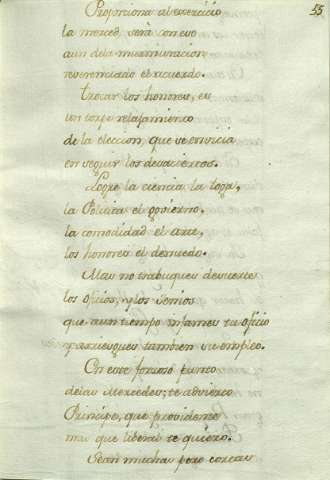 55
Proporciona al exercicio
la merced, será con eso
aun de la murmuracion
reverenciado el acuerdo.
Trocar los honores, es
un torpe relajamiento
de la eleccion, que se envicia
en seguir los desaciertos.
Logre la ciencia la toga,
la Policia el govierno,
la comodidad el arte,
los honores el denuedo.
Mas no trabuques de suerte
los oficios, y los
que a un tiempo infames tu oficio
y arriesgues tambien su empleo.
En este forzoso punto
de las Mercedes, te advierto
Principe, que providente
mas que liberal te quiero.
Sean muchas pero cortas